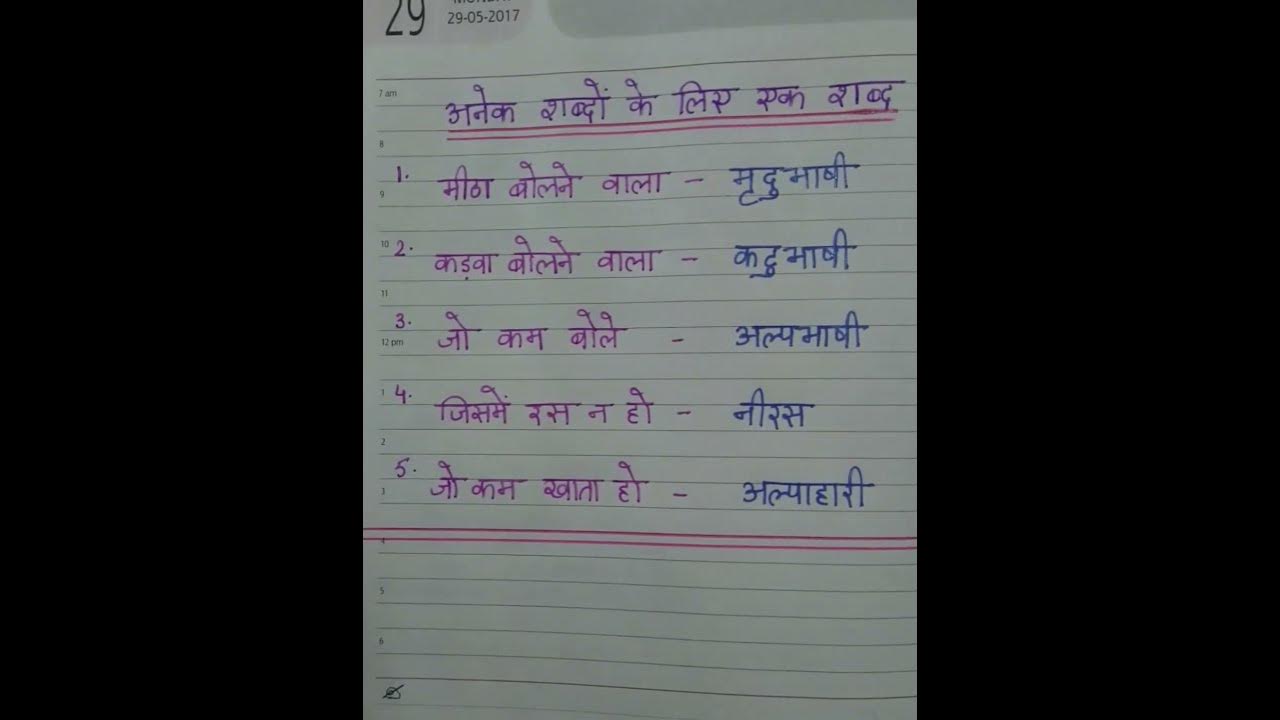 29
29-05-2017
7 am
अनेक शब्दों के लिए एक शब्द
8
1. मीठा बोलने वाला - मृदुभाषी
9
10
2. कड़वा बोलने वाला - कटुभाषी
11
3. जो कम बोले - अल्पभाषी
12 pm
1
4. जिसमें रस न हो - नीरस
2
5. जो कम खाता हो - अल्पाहारी
3
4
5
6